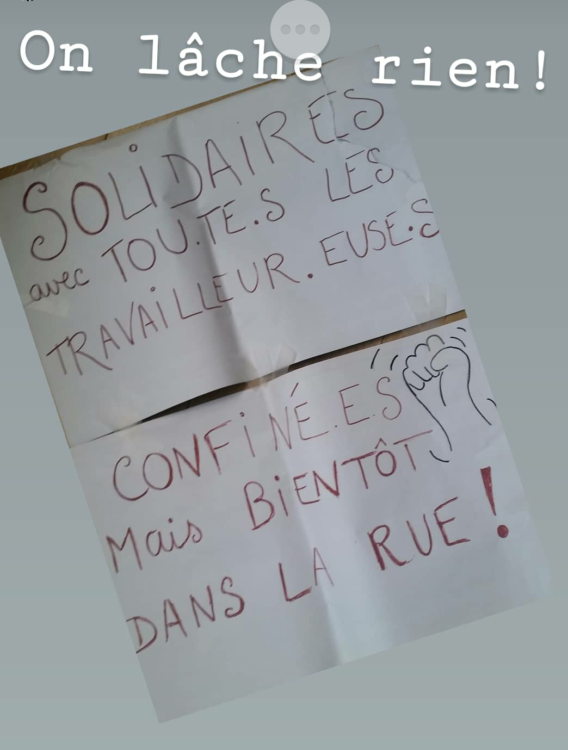 On lâche rien!
SOLiDAiRES
avec TOU.TE.S LES
TRAVAiLLEUR.EUSE.S
CONFiNÉ.E.S
Mais BiENTÔT
DANS LA RUE !